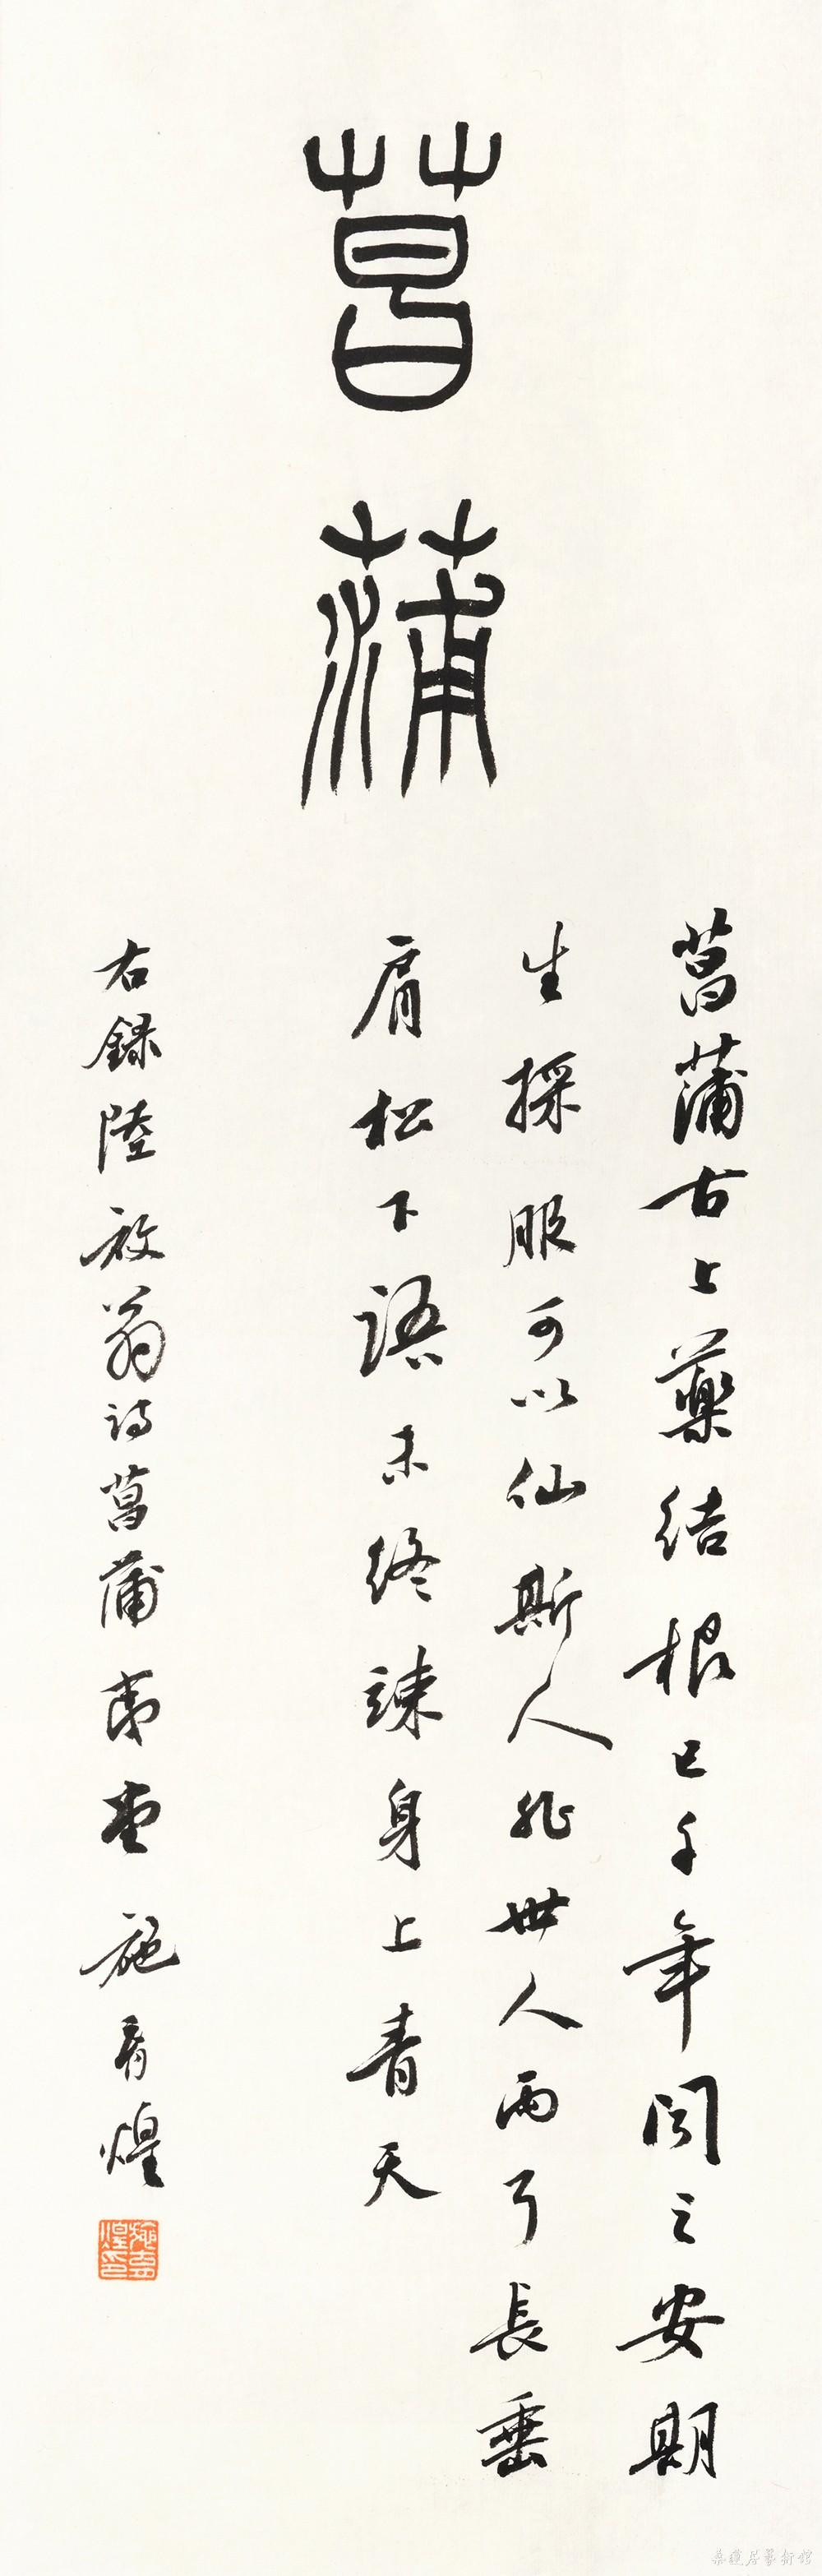 菖蒲
菖蒲古上藥結根已千年聞之安期
生採服可以仙斯人非世人兩耳長垂
肩松下語未終竦身上青天
右錄陸放翁詩菖蒲 堂 施 煌
桑蓮居藝術館